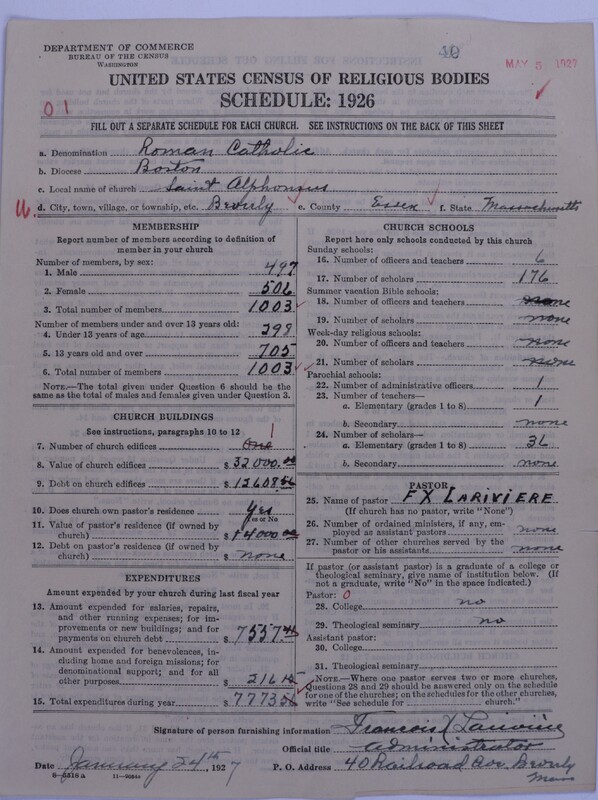 DEPARTMENT OF COMMERCE
BUREAU OF THE CENSUS
WASHINGTON
40
MAY 5 1927
UNITED STATES CENSUS OF RELIGIOUS BODIES
SCHEDULE: 1926
01
FILL OUT A SEPARATE SCHEDULE FOR EACH CHURCH. SEE INSTRUCTIONS ON THE BACK OF THIS SHEET
a. Denomination Roman Catholic
b. Diocese Boston
c. Local name of church Saint Alphonsus
d. City, town, village, or township, etc. Beverly e. County Essex f. State Massachusetts
MEMBERSHIP
Report number of members according to definition of member in your church
Number of members, by sex:
1. Male 497
2. Female 506
3. Total number of members 1003
Number of members under and over 13 years old:
4. Under 13 years of age 298
5. 13 years old and over 705
6. Total number of members 1003
NOTE.—The total given under Question 6 should be the same as the total of males and females given under Question 3.
CHURCH BUILDINGS
See instructions, paragraphs 10 to 12
7. Number of church edifices One 1
8. Value of church edifices $ 32000.00
9. Debt on church edifices $ 12608.56
10. Does church own pastor's residence? Yes
Yes or No
11. Value of pastor's residence (if owned by church) $ 4000.00
12. Debt on pastor's residence (if owned by church) $ none
EXPENDITURES
Amount expended by your church during last fiscal year
13. Amount expended for salaries, repairs, and other running expenses; for improvements or new buildings; and for payments on church debt $ 7557.
14. Amount expended for benevolences, including home and foreign missions; for denominational support; and for all other purposes $ 216
15. Total expenditures during year $ 7773
CHURCH SCHOOLS
Report here only schools conducted by this church
Sunday schools:
16. Number of officers and teachers 6
17. Number of scholars 176
Summer vacation Bible schools:
18. Number of officers and teachers none
19. Number of scholars none
Week-day religious schools:
20. Number of officers and teachers none
21. Number of scholars none
Parochial schools:
22. Number of administrative officers 1
23. Number of teachers—
a. Elementary (grades 1 to 8) 1
b. Secondary none
24. Number of scholars—
a. Elementary (grades 1 to 8) 36
b. Secondary none
PASTOR
25. Name of pastor FX LARIVIERE
(If church has no pastor, write "None")
26. Number of ordained ministers, if any, employed as assistant pastors none
27. Number of other churches served by the pastor or his assistants none
If pastor (or assistant pastor) is a graduate of a college or theological seminary, give name of institution below. (If not a graduate, write "No" in the space indicated.)
Pastor: 0
28. College no
29. Theological seminary no
Assistant pastor:
30. College
31. Theological seminary
NOTE.—Where one pastor serves two or more churches, Questions 28 and 29 should be answered only on the schedule for one of the churches; on the schedules for the other churches, write "See schedule for church."
Signature of person furnishing information Francois X Lariviere
Official title administrator
Date January 24th, 1927 P. O. Address 40 Railroad Ave. Beverly
Mass
8-5318a